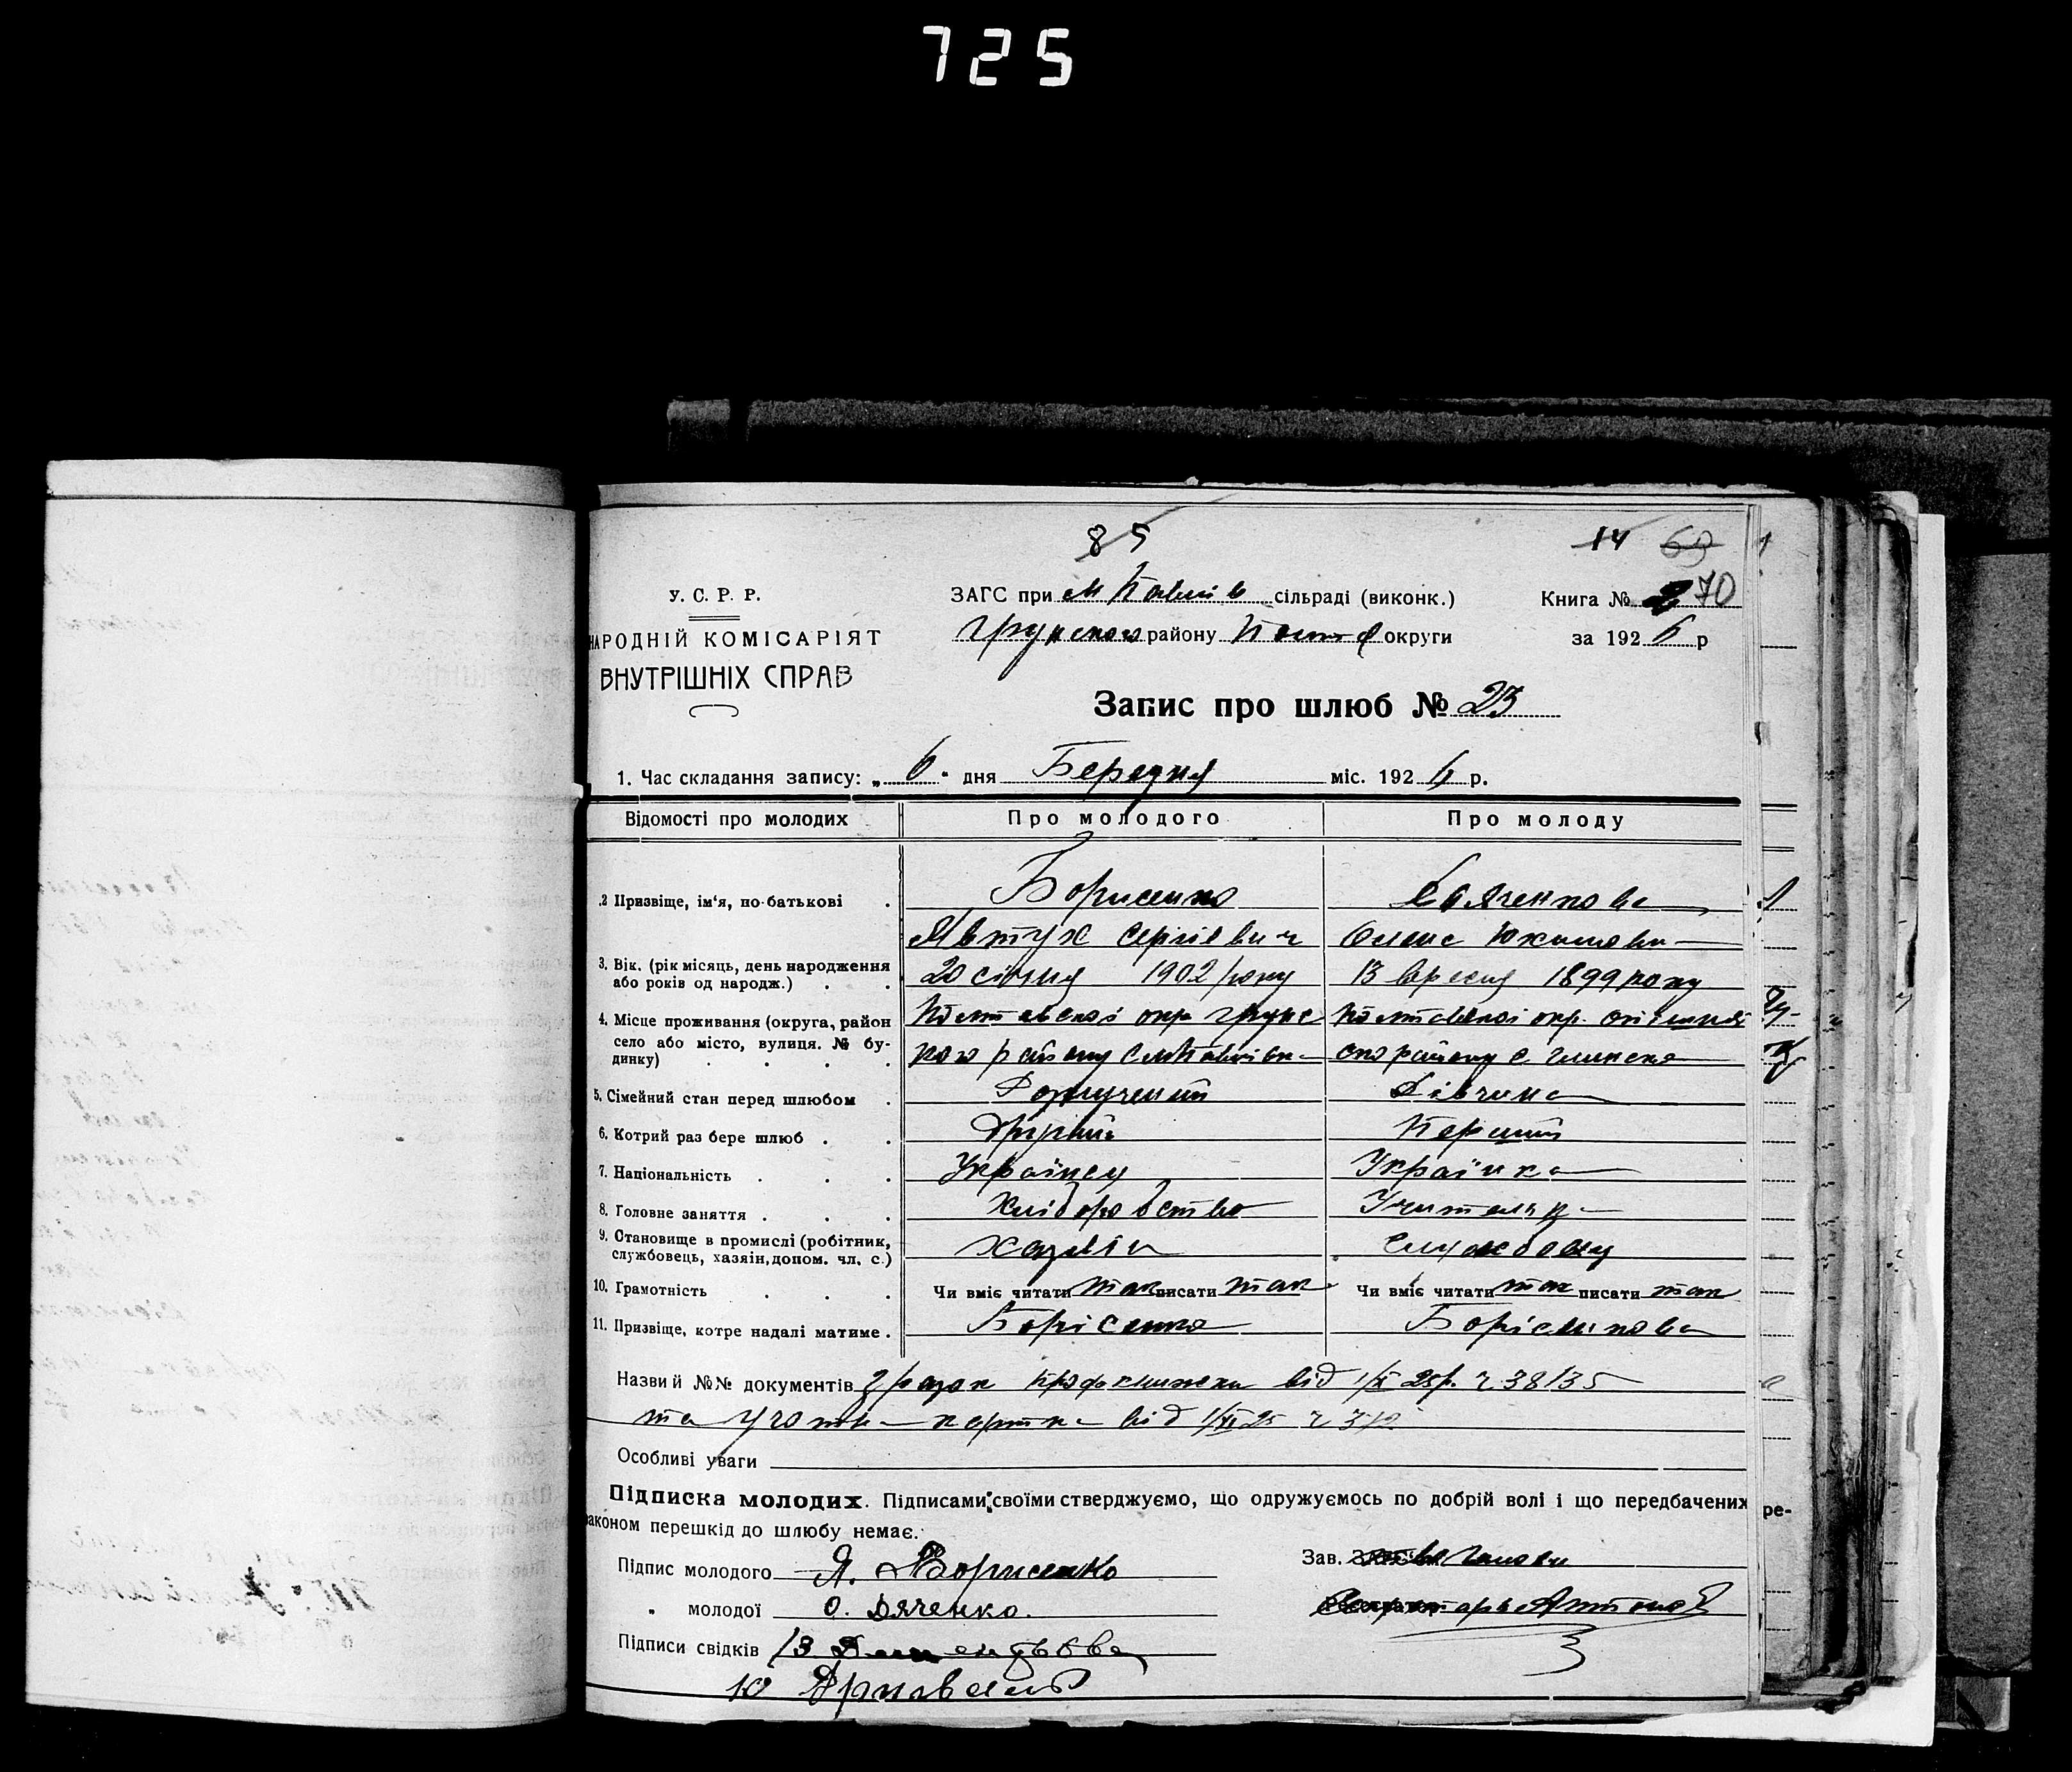 725
85
14 69
У. С. Р. Р.
ЗАГС при м Ковалів сільраді (виконк.)
Книга № 2 70
НАРОДНІЙ КОМІСАРІЯТ
Грунського району Полт округи
за 1926 р
ВНУТРІШНІХ СПРАВ
Запис про шлюб № 23
1. Час складання запису: „ 6 " дня Березня міс. 1926 р.
Відомості про молодих Про молодого Про молоду
2 Призвіще, ім'я, по-батькові Борисенко Дяченкова
Явтух Сергієвич Олена Юхимовн
3. Вік. (рік місяць, день народження 20 січня 1902 року 13 вресня 1899 року
або років од народж.)
4. Місце проживання (округа, район Полтавської окр Грунс Полтавської окр. Опішнян
село або місто, вулиця. № бу- кого району ского району с Глинська
динку)
5. Сімейний стан перед шлюбом Розлучений Дівчина
6. Котрий раз бере шлюб Другий Перший
7. Національність Українец Українка
8. Головне заняття Хліборобство Учителька
9. Становище в промислі (робітник, Хазяїн службовец
службовець, хазяін, допом. чл. с.)
10. Грамотність Чи вміє читати так писати так Чи вміє читати так писати так
11. Призвіще, котре надалі матиме Борісенко Борісенкова
Назви й №№ документів зразок профкнижки від 1/ІХ 25р. ч 38135
та учотна картка від 1/ХІ 25 ч
Особливі уваги
Підписка молодих. Підписами своїми стверджуємо, що одружуємось по добрій волі і що передбачених
законом перешкід до шлюбу немає.
ре-
Підпис молодого Я. Борисенко
Зав. ЗАГС'ом Голова
" молодої О. Дяченко.
Реєстратор
Підписи свідків